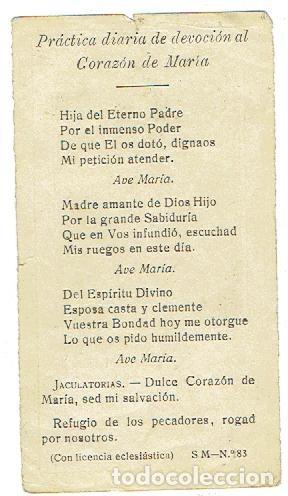 Práctica diaria de devoción al
Corazón de María
Hija del Eterno Padre
Por el inmenso Poder
De que El os dotó, dignaos
Mi petición atender.
Ave María.
Madre amante de Dios Hijo
Por la grande Sabiduría
Que en Vos infundió, escuchad
Mis ruegos en este día.
Ave María.
Del Espíritu Divino
Esposa casta y clemente
Vuestra Bondad hoy me otorgue
Lo que os pido humildemente.
Ave María.
JACULATORIAS. — Dulce Corazón de
María, sed mi salvación.
Refugio de los pecadores, rogad
por nosotros.
(Con licencia eclesiástica) S M—N.º 83
todocoleccion.net